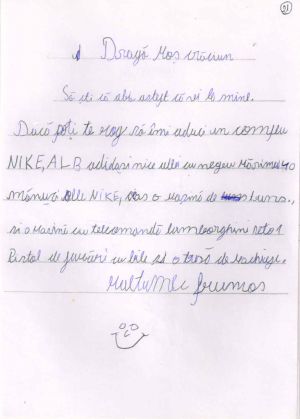 21
Dragă Moș crăciun
Să ști că abs astept că vei la mine.
Dacă poți te rog să îmi aduci un compleu
NIKE, ALB adidasi nice alb cu negru Mărimu 40
mănuși NIKE, o mașină de
si o mașină cu telecomandă lamborghini
Pistol de jucări cu bile și o trusă de machiaj.
MulțuMesc frumos